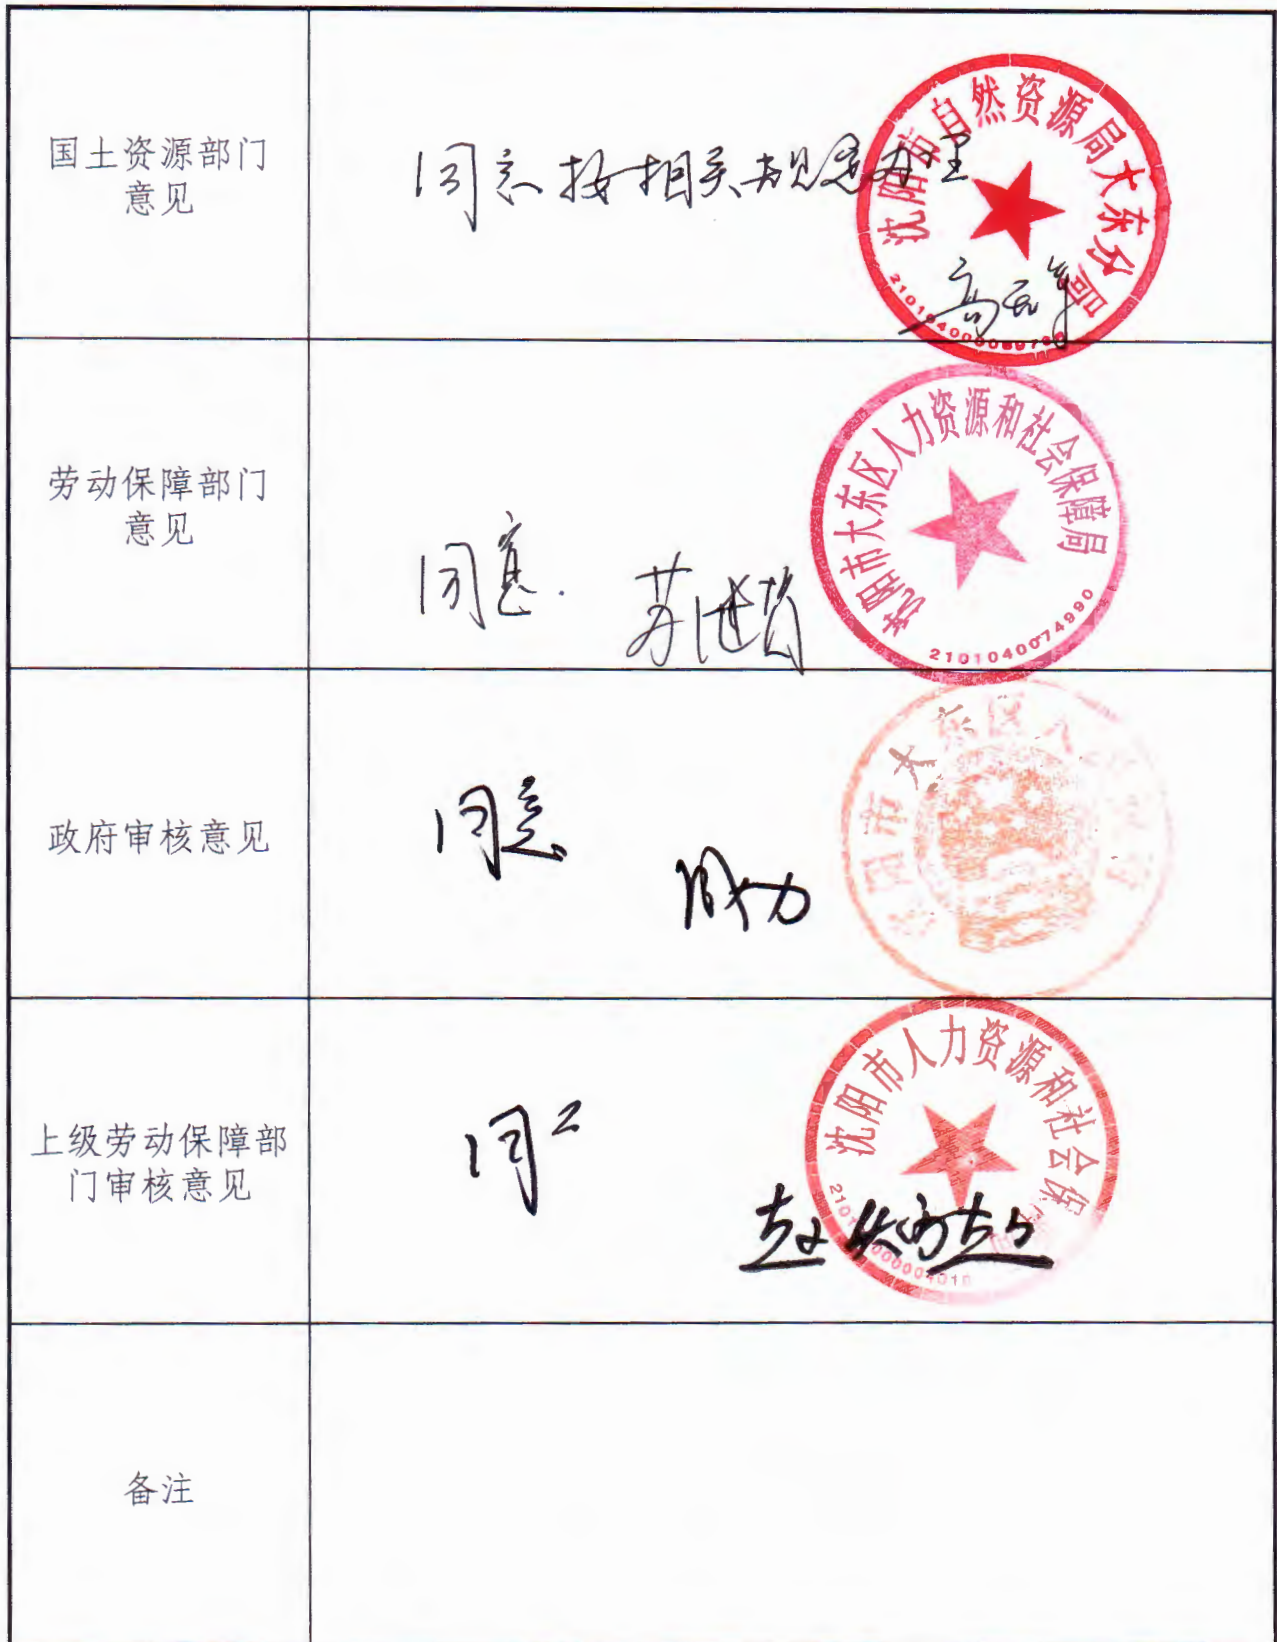 国土资源部门
意见
同意按相关规定办理
沈阳市自然资源局大东分局
劳动保障部门
意见
同意.
沈阳市大东区人力资源和社会保障局
2101040074990
政府审核意见
同意
市大东区人
上级劳动保障部
门审核意见
同
沈阳市人力资源和社会保
备注